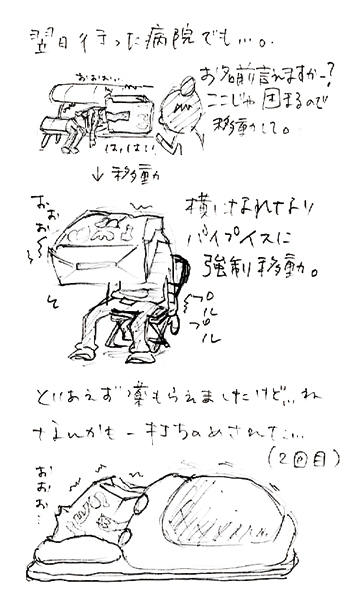 翌日行った病院でも…。
おぉぉ…
お名前言えますかー?
ここじゃ困まるので
移動して。
はいはい
↓移動
おぉぉ
横になれないなり
パイプイスに
強制移動。
プルプル
とりあえず薬もらえましたけど…ね
なんかも一打ちのめされて…
(2回目)
おぉぉ…